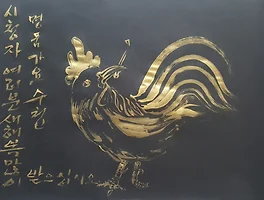 명품가요
시청자 여러분 새해 복 많이
받으십시오